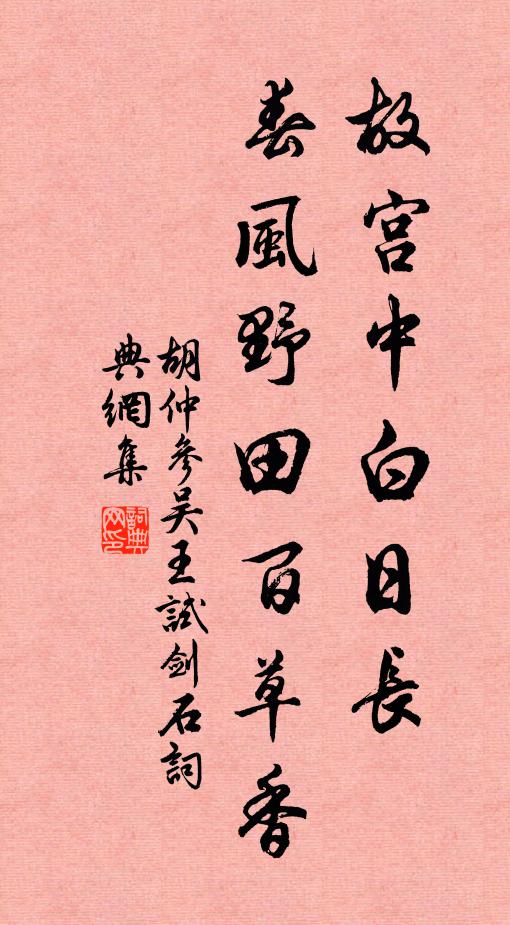 故宮中白日長
春風野田百草香
胡仲參吳王試劍石詞
典網集
詞典网印